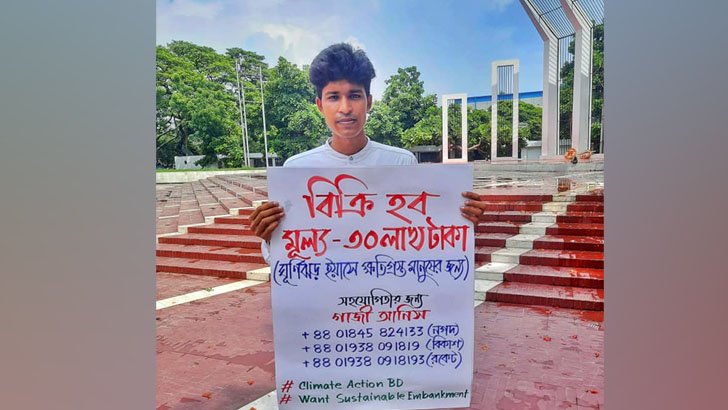 বিক্রি হব
মূল্য-৩০ লাখ টাকা
(ঘূর্ণিঝড় ইয়াসে ক্ষতিগ্রস্ত মানুষের জন্য)
সহযোগিতার জন্য
গাজী আনিস
+88 01845 824133 (নগদ)
+88 01938 091819 (বিকাশ)
+88 01938 0918193 (রকেট)
# Climate Action BD
# Want Sustainable Embankment